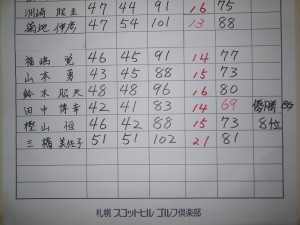 洲崎 昭圭 47 44 91 16 75
菊地 伸彦 47 54 101 13 88
福嶋 覚 46 45 91 14 77
山本 勇 43 45 88 15 73
鈴木 昭夫 48 48 96 16 80
田中 博幸 42 41 83 14 69 優勝
樫山 恒 46 42 88 15 73 8位
三橋 美佐子 51 51 102 21 81
札幌 スコットヒル ゴルフ倶楽部